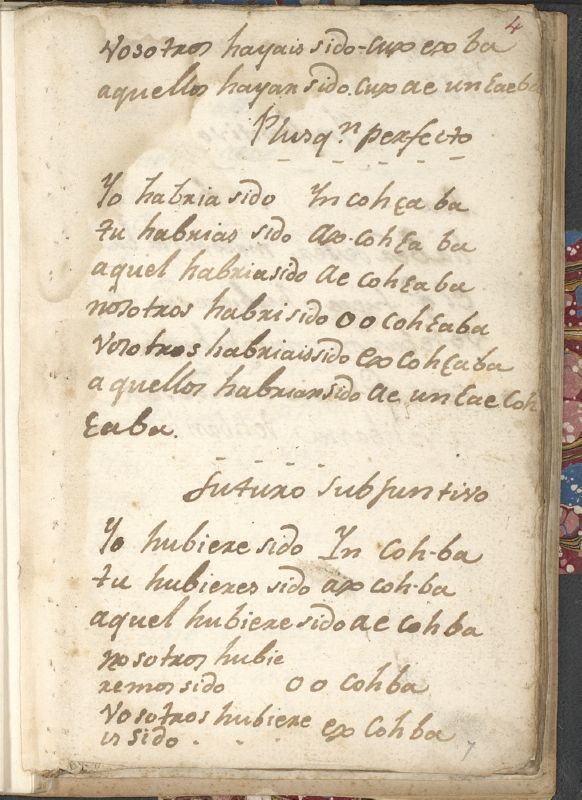 4
vosotros hayais sido - cux ex ba
aquellos hayan sido. cux ae un ɛaeba
Plusq.n perfecto
Yo habria sido Yn coh ɛa ba
tu habrias sido ax-coh ɛa ba
aquel habria sido ae coh ɛaba
nosotros habri sido oo coh ɛaba
Vosotros habriais sido ex coh ɛaba
aquellos habrian sido ae un ɛae Coh
ɛaba.
futuro subjuntivo
Yo hubiere sido Yn Coh-ba
tu hubieres sido ax coh-ba
aquel hubiere sido ae cohba
nosotros hubie
remos sido oo Cohba
Vosotros hubiere
is sido . ex Cohba
7